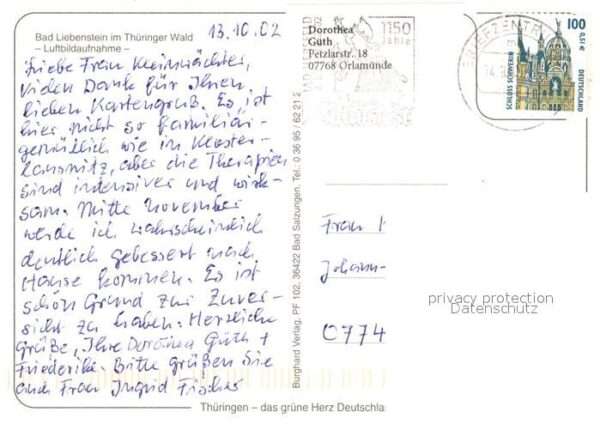 13.10.02
Bad Liebenstein im Thüringer Wald
– Luftbildaufnahme –
Liebe Frau Kleinwächter,
vielen Dank für Ihren
lieben Kartengruß. Es ist
hier nicht so familiär-
gemütlich wie in Kloster-
lausnitz, aber die Therapien
sind intensiver und wirk-
sam. Mitte November
werde ich wahrscheinlich
deutlich gebessert nach
Hause kommen. Es ist
schön Grund zur Zuver-
sicht zu haben. Herzliche
Grüße, Ihre Dorothea Güth +
Friederike. Bitte grüßen Sie
auch Frau Ingrid Fischer
Burghard Verlag, PF 102, 36433 Bad Salzungen, Tel.: 0 36 95 / 62 21 2
Dorothea
Güth
Petzlarstr. 18
07768 Orlamünde
1150
Jahre
BRIEFZENTR
100
0,51 €
SCHLOSS SCHWERIN
DEUTSCHLAND
Frau
Johann-
0774
privacy protection
Datenschutz
Thüringen – das grüne Herz Deutschla